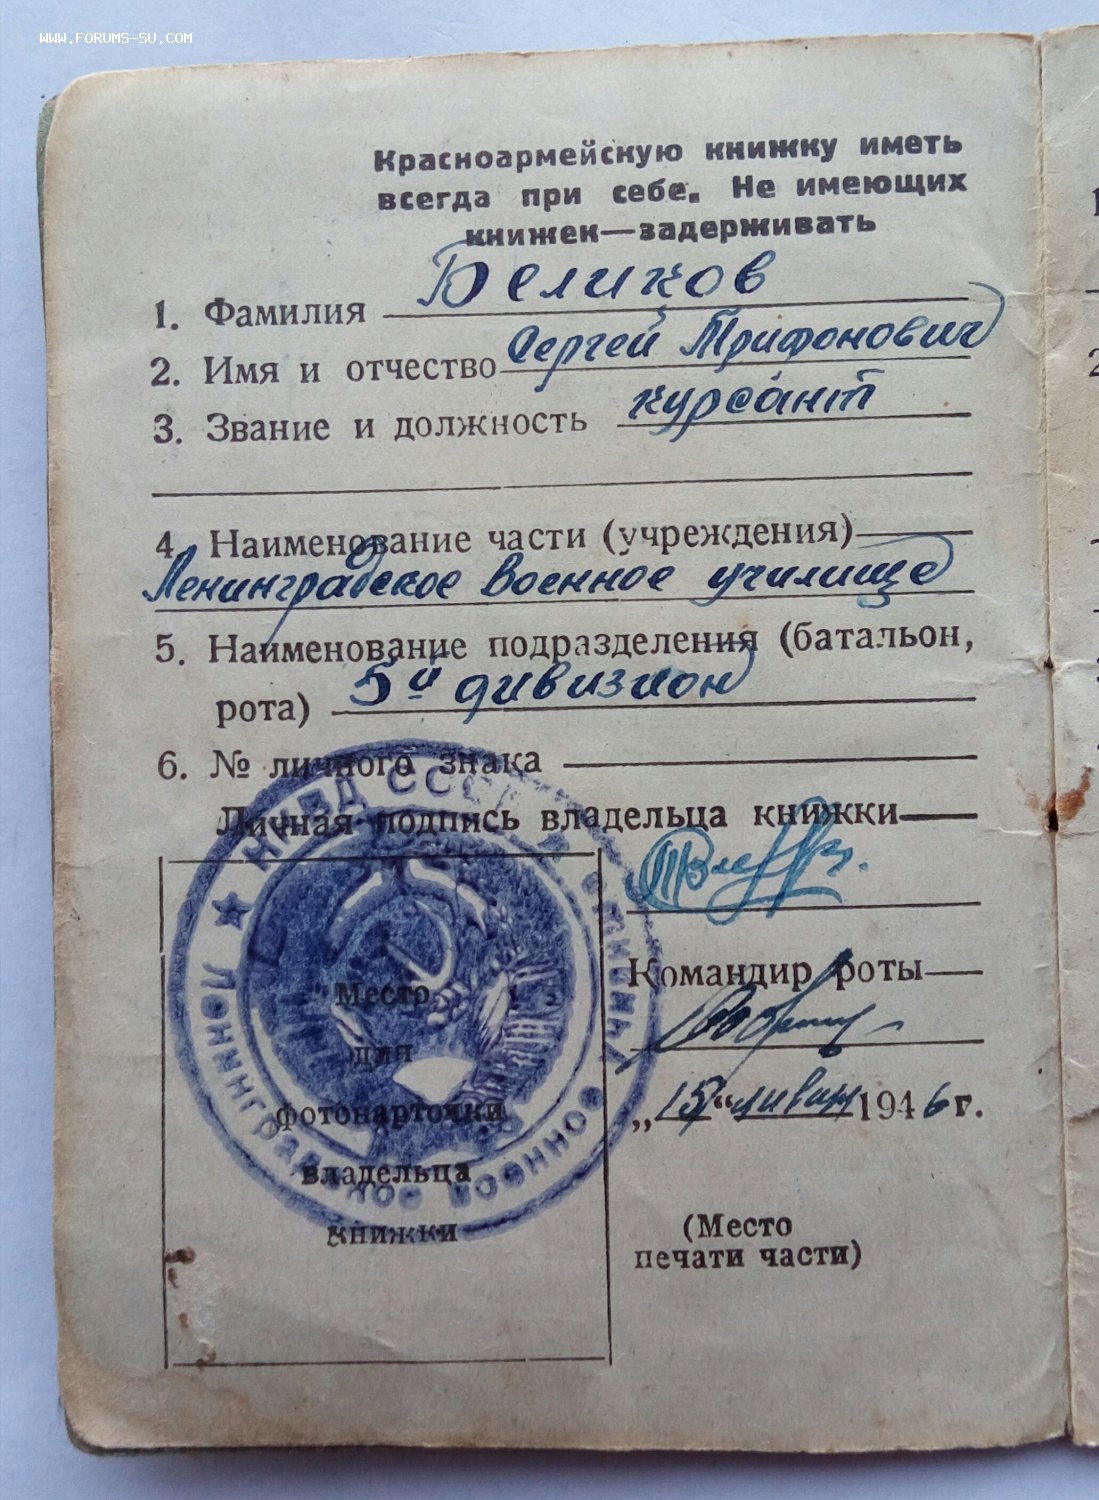 WWW.FORUMS-SU.COM
Красноармейскую книжку иметь
всегда при себе. Не имеющих
книжек—задерживать
1. Фамилия Великов
2. Имя и отчество Сергей Трифонович
3. Звание и должность курсант
4. Наименование части (учреждения)
Ленинградское Военное училище
5. Наименование подразделения (батальон,
рота) 5й дивизион
6. № личного знака
Личная подпись владельца книжки
НКВД СССР
Ленинградское военное
Место
для
фотокарточки
владельца
книжки
Командир роты
„15“ января 1946 г.
(Место
печати части)